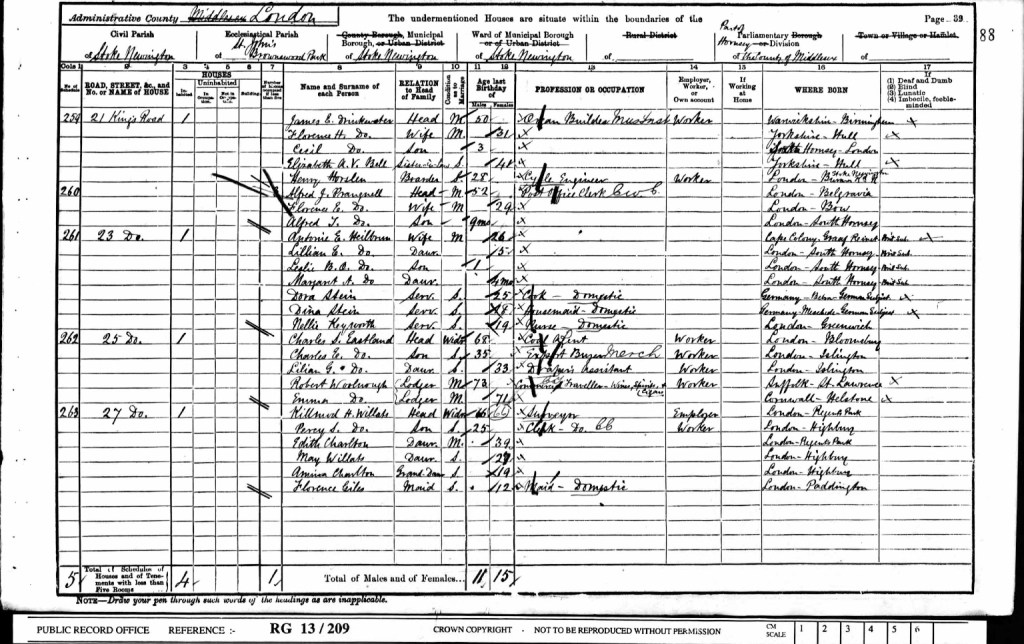 Administrative County Middlesex London The undermentioned Houses are situate within the boundaries of the Page 39
88
Civil Parish Ecclesiastical Parish County Borough, Municipal Borough, or Urban District Ward of Municipal Borough or of Urban District Rural District Parliamentary Borough or Division Town or Village or Hamlet
of Stoke Newington of St. John's Brownswood Park of Stoke Newington of Stoke Newington of Part of Hornsey of the County of Middlesex
Cols 1 2 3 4 5 6 7 8 9 10 11 12 13 14 15 16 17
No. of Schedule ROAD, STREET, &c., and No. or NAME of HOUSE HOUSES Inhabited Uninhabited In Occupation Not in Occupation Building Name and Surname of each Person RELATION to Head of Family Condition as to Marriage Age last Birthday of Males Females PROFESSION OR OCCUPATION Employer, Worker, or Own account If Working at Home WHERE BORN If (1) Deaf and Dumb (2) Blind (3) Lunatic (4) Imbecile, feeble-minded
259 21 King's Road 1 James E. Drinkwater Head M 50 Organ Builder Must Inst Worker Warwickshire - Birmingham
Florence H. Do. Wife M. 31 Yorkshire - Hull
Cecil Do. Son 3 South Hornsey - London
Elizabeth A. V. Bell Sister-in-law S. 48 Yorkshire - Hull
Henry Horslen Boarder S 28 Cycle Engineer Worker London - Stoke Newington
260 Alfred J. Prangnell Head M 52 Post Office Clerk London - Belgravia
Florence E. Do Wife M 29 London - Bow
Alfred T. Do Son 9mo London - South Hornsey
261 23 Do. 1 Antonie E. Heilbrun Wife M 26 Cape Colony - Graaf Reinet - Brit Sub.
Lillian E. Do Daur. 5 London - South Hornsey - Brit Sub.
Leslie B. O. Do. Son 1 London - South Hornsey - Brit Sub.
Margaret A. Do Daur. 4mo London - South Hornsey - Brit Sub.
Dora Stein Serv. S. 25 Cook - Domestic Germany - German Subject
Dina Stein Serv. S. 24 Housemaid - Domestic Germany - Meschede - German Subject
Nellie Keyworth Serv. S 19 Nurse - Domestic London - Greenwich
262 25 Do. 1 Charles S. Eastland Head Widr 68 Coal Agent Worker London - Bloomsbury
Charles E. Do. Son S 35 Export Buyer Merch Worker London - Islington
Lilian G. Do Daur S 33 Draper's Assistant Worker London - Islington
Robert Worlnough Lodger M 73 Commercial Traveller - Wines, Spirits & Cigars Worker Suffolk - St. Lawrence
Emma Do. Lodger M 71 Cornwall - Helstone
263 27 Do. 1 Killmud H. Willats Head Widr 66 Surveyor Employer London - Regents Park
Percy S. Do. Son S. 25 Clerk - Do. Worker London - Highbury
Edith Charlton Daur. M. 39 London - Regents Park
May Willats Daur. S 27 London - Highbury
Amina Charlton Grand-Daur S. 19 London - Highbury
Florence Giles Maid S. 12 Maid - Domestic London - Paddington
5 Total of Schedules of Houses and of Tenements with less than Five Rooms 4 1 Total of Males and of Females... 11 15
NOTE—Draw your pen through such words of the headings as are inapplicable.
PUBLIC RECORD OFFICE REFERENCE :- RG 13/209 CROWN COPYRIGHT - NOT TO BE REPRODUCED WITHOUT PERMISSION CM SCALE 1 2 3 4 5 6